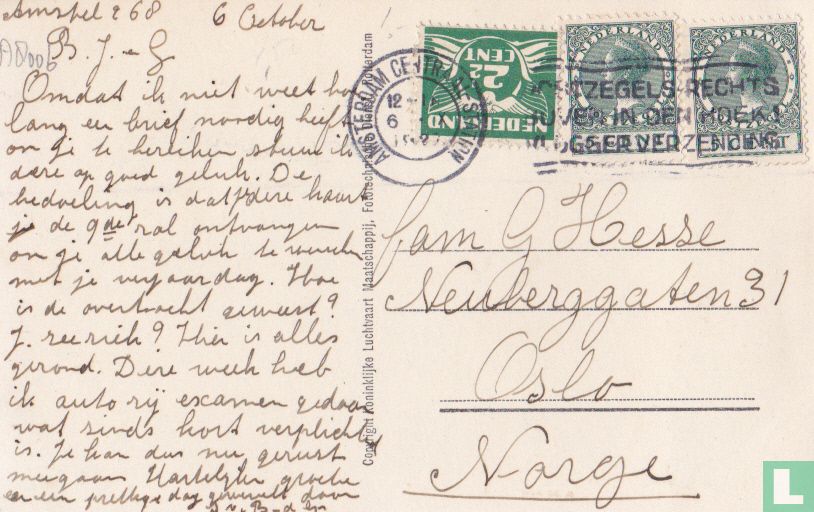 Amstel 268 6 October
A8006
B. J. - G
Omdat ik niet weet hoe
lang een brief noodig heeft
om je te bereiken stuur ik
deze op goed geluk. De
bedoeling is dat deze kaart
je de 9de zal ontvangen
om je alle geluk te wenschen
met je verjaardag. Hoe
is de overtocht geweest?
J. zeeziek? Hier is alles
gezond. Deze week heb
ik auto rij examen gedaan
wat sinds kort verplicht
is. Je kan dus nu gerust
meegaan Hartelijke groeten
en een prettige dag gewenscht door
Copyright Koninklijke Luchtvaart Maatschappij, Fototechnische Dienst Rotterdam
NEDERLAND
2½
CENT
AMSTERDAM CENTRAAL STATION
12
6
NEDERLAND
NEDERLAND
POSTZEGELS RECHTS
BOVEN IN DEN HOEK!
VLUGGER VERZENDING
Fam G Hesse
Neuberggaten 31
Oslo
Norge
L